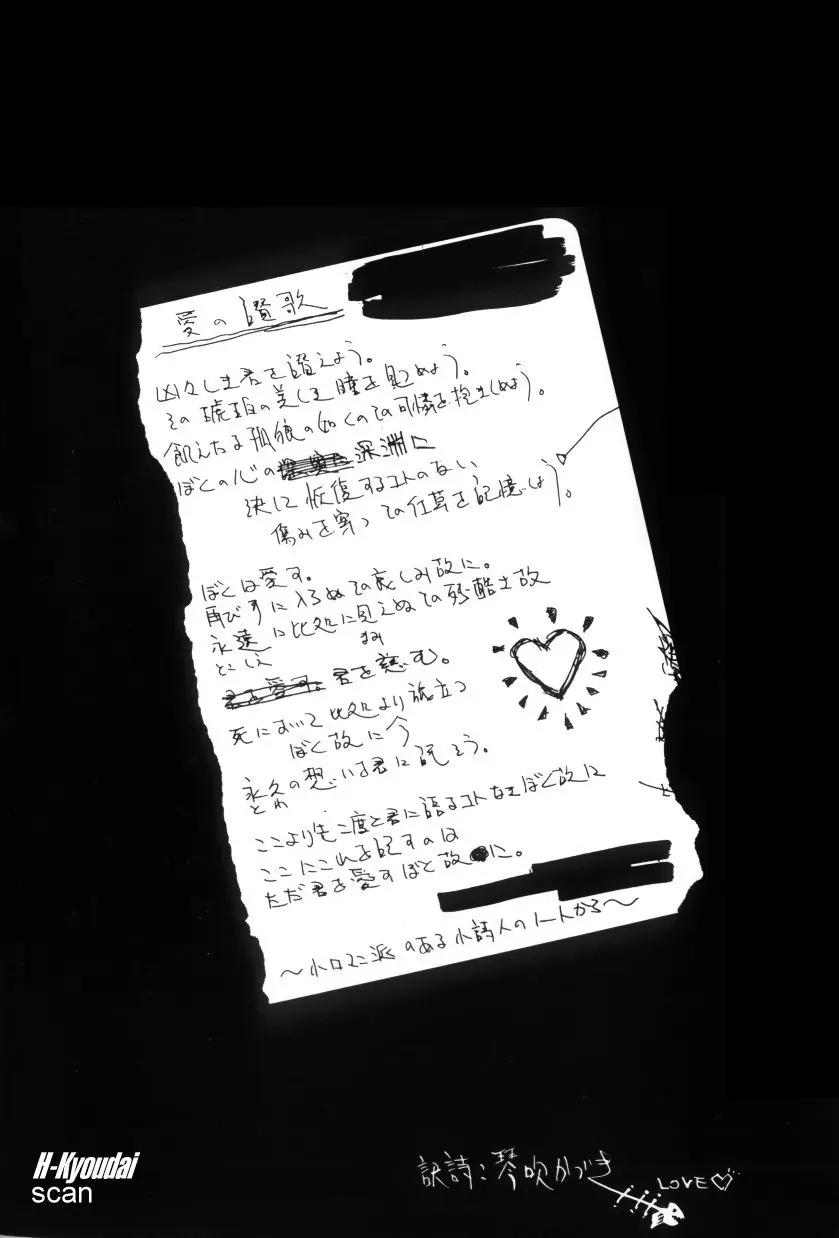 愛の讃歌
凶々しき君を讃えよう。
その琥珀の美しき瞳を見つめよう。
飢えたる孤狼の如くのその可憐を抱きしめよう。
ぼくの心の深淵に
決して恢復するコトのない
傷みを穿つその仕草を記憶しよう。
ぼくは愛す。
再び手に入らぬその哀しみ故に。
永遠に此処に見えぬその残酷さ故
とこしえ
まみ
君を愛す。君を慈む。
死において此処より旅立つ
ぼく故に今
永久の想いを君に託そう。
とわ
ここよりも二度と君に語るコトなきぼく故に
ここにこれを記すのは
ただ君を愛すぼく故に。
〜小ロマン派のある小詩人のノートから〜
訳詩:琴吹かづき
LOVE♡
H-Kyoudai
scan